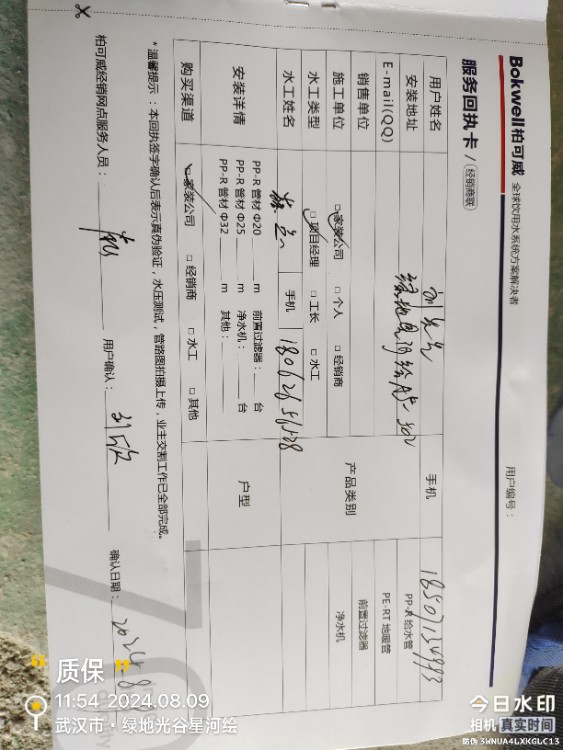 Bokwell柏可威 全球饮用水系统方案解决者
用户编号：
服务回执卡 / 经销商联
用户姓名 手机 18507134993
安装地址
E-mail(QQ)
销售单位
施工单位 □家装公司 □个人 □经销商
水工类型 □项目经理 □工长 □水工
水工姓名 手机
产品类别 PP-R 给水管
PE-RT 地暖管
前置过滤器
净水机
安装详情 PP-R 管材 Φ20 m 前置过滤器： 台
PP-R 管材 Φ25 m 净水机： 台
PP-R 管材 Φ32 m 其他：
户型
购买渠道 □家装公司 □经销商 □水工 □其他
*温馨提示：本回执签字确认后表示真伪验证，水压测试，管路图拍摄上传，业主交割工作已全部完成。
柏可威经销网点服务人员： 用户确认： 确认日期：
质保
11:54 2024.08.09
武汉市·绿地光谷星河绘
今日水印
相机 真实时间
防伪 3WNUA4LXKGLC13